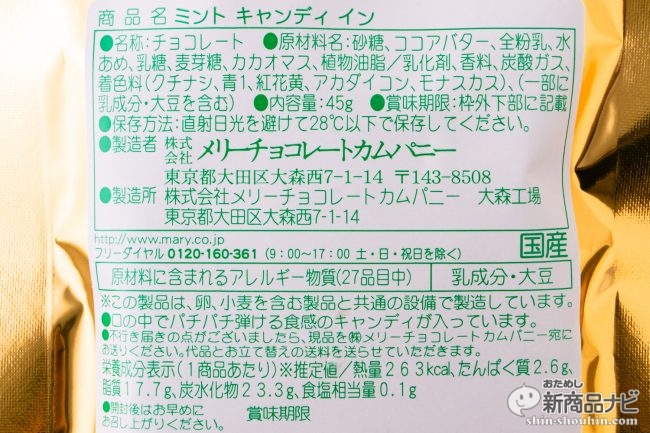 商品名 ミント キャンディ イン
●名称:チョコレート ●原材料名:砂糖、ココアバター、全粉乳、水
あめ、乳糖、麦芽糖、カカオマス、植物油脂/乳化剤、香料、炭酸ガス、
着色料(クチナシ、青1、紅花黄、アカダイコン、モナスカス)、(一部に
乳成分・大豆を含む) ●内容量:45g ●賞味期限:枠外下部に記載
●保存方法:直射日光を避けて28℃以下で保存してください。
●製造者 株式会社 メリーチョコレートカムパニー
東京都大田区大森西7-1-14 〒143-8508
●製造所 株式会社メリーチョコレートカムパニー 大森工場
東京都大田区大森西7-1-14
http://www.mary.co.jp
フリーダイヤル 0120-160-361 (9:00〜17:00 土・日・祝日を除く)
国産
原材料に含まれるアレルギー物質(27品目中) 乳成分・大豆
※この製品は、卵、小麦を含む製品と共通の設備で製造しています。
●口の中でパチパチ弾ける食感のキャンディが入っています。
●不行き届きの点がございましたら、現品を㈱メリーチョコレートカムパニー宛に
お送りください。代品とお立て替えの送料を送らせていただきます。
栄養成分表示(1商品あたり)※推定値/熱量263kcal、たんぱく質2.6g、
脂質17.7g、炭水化物23.3g、食塩相当量0.1g
●開封後はお早めに
お召し上がりください。
賞味期限
おためし
新商品ナビ
shin-shouhin.com